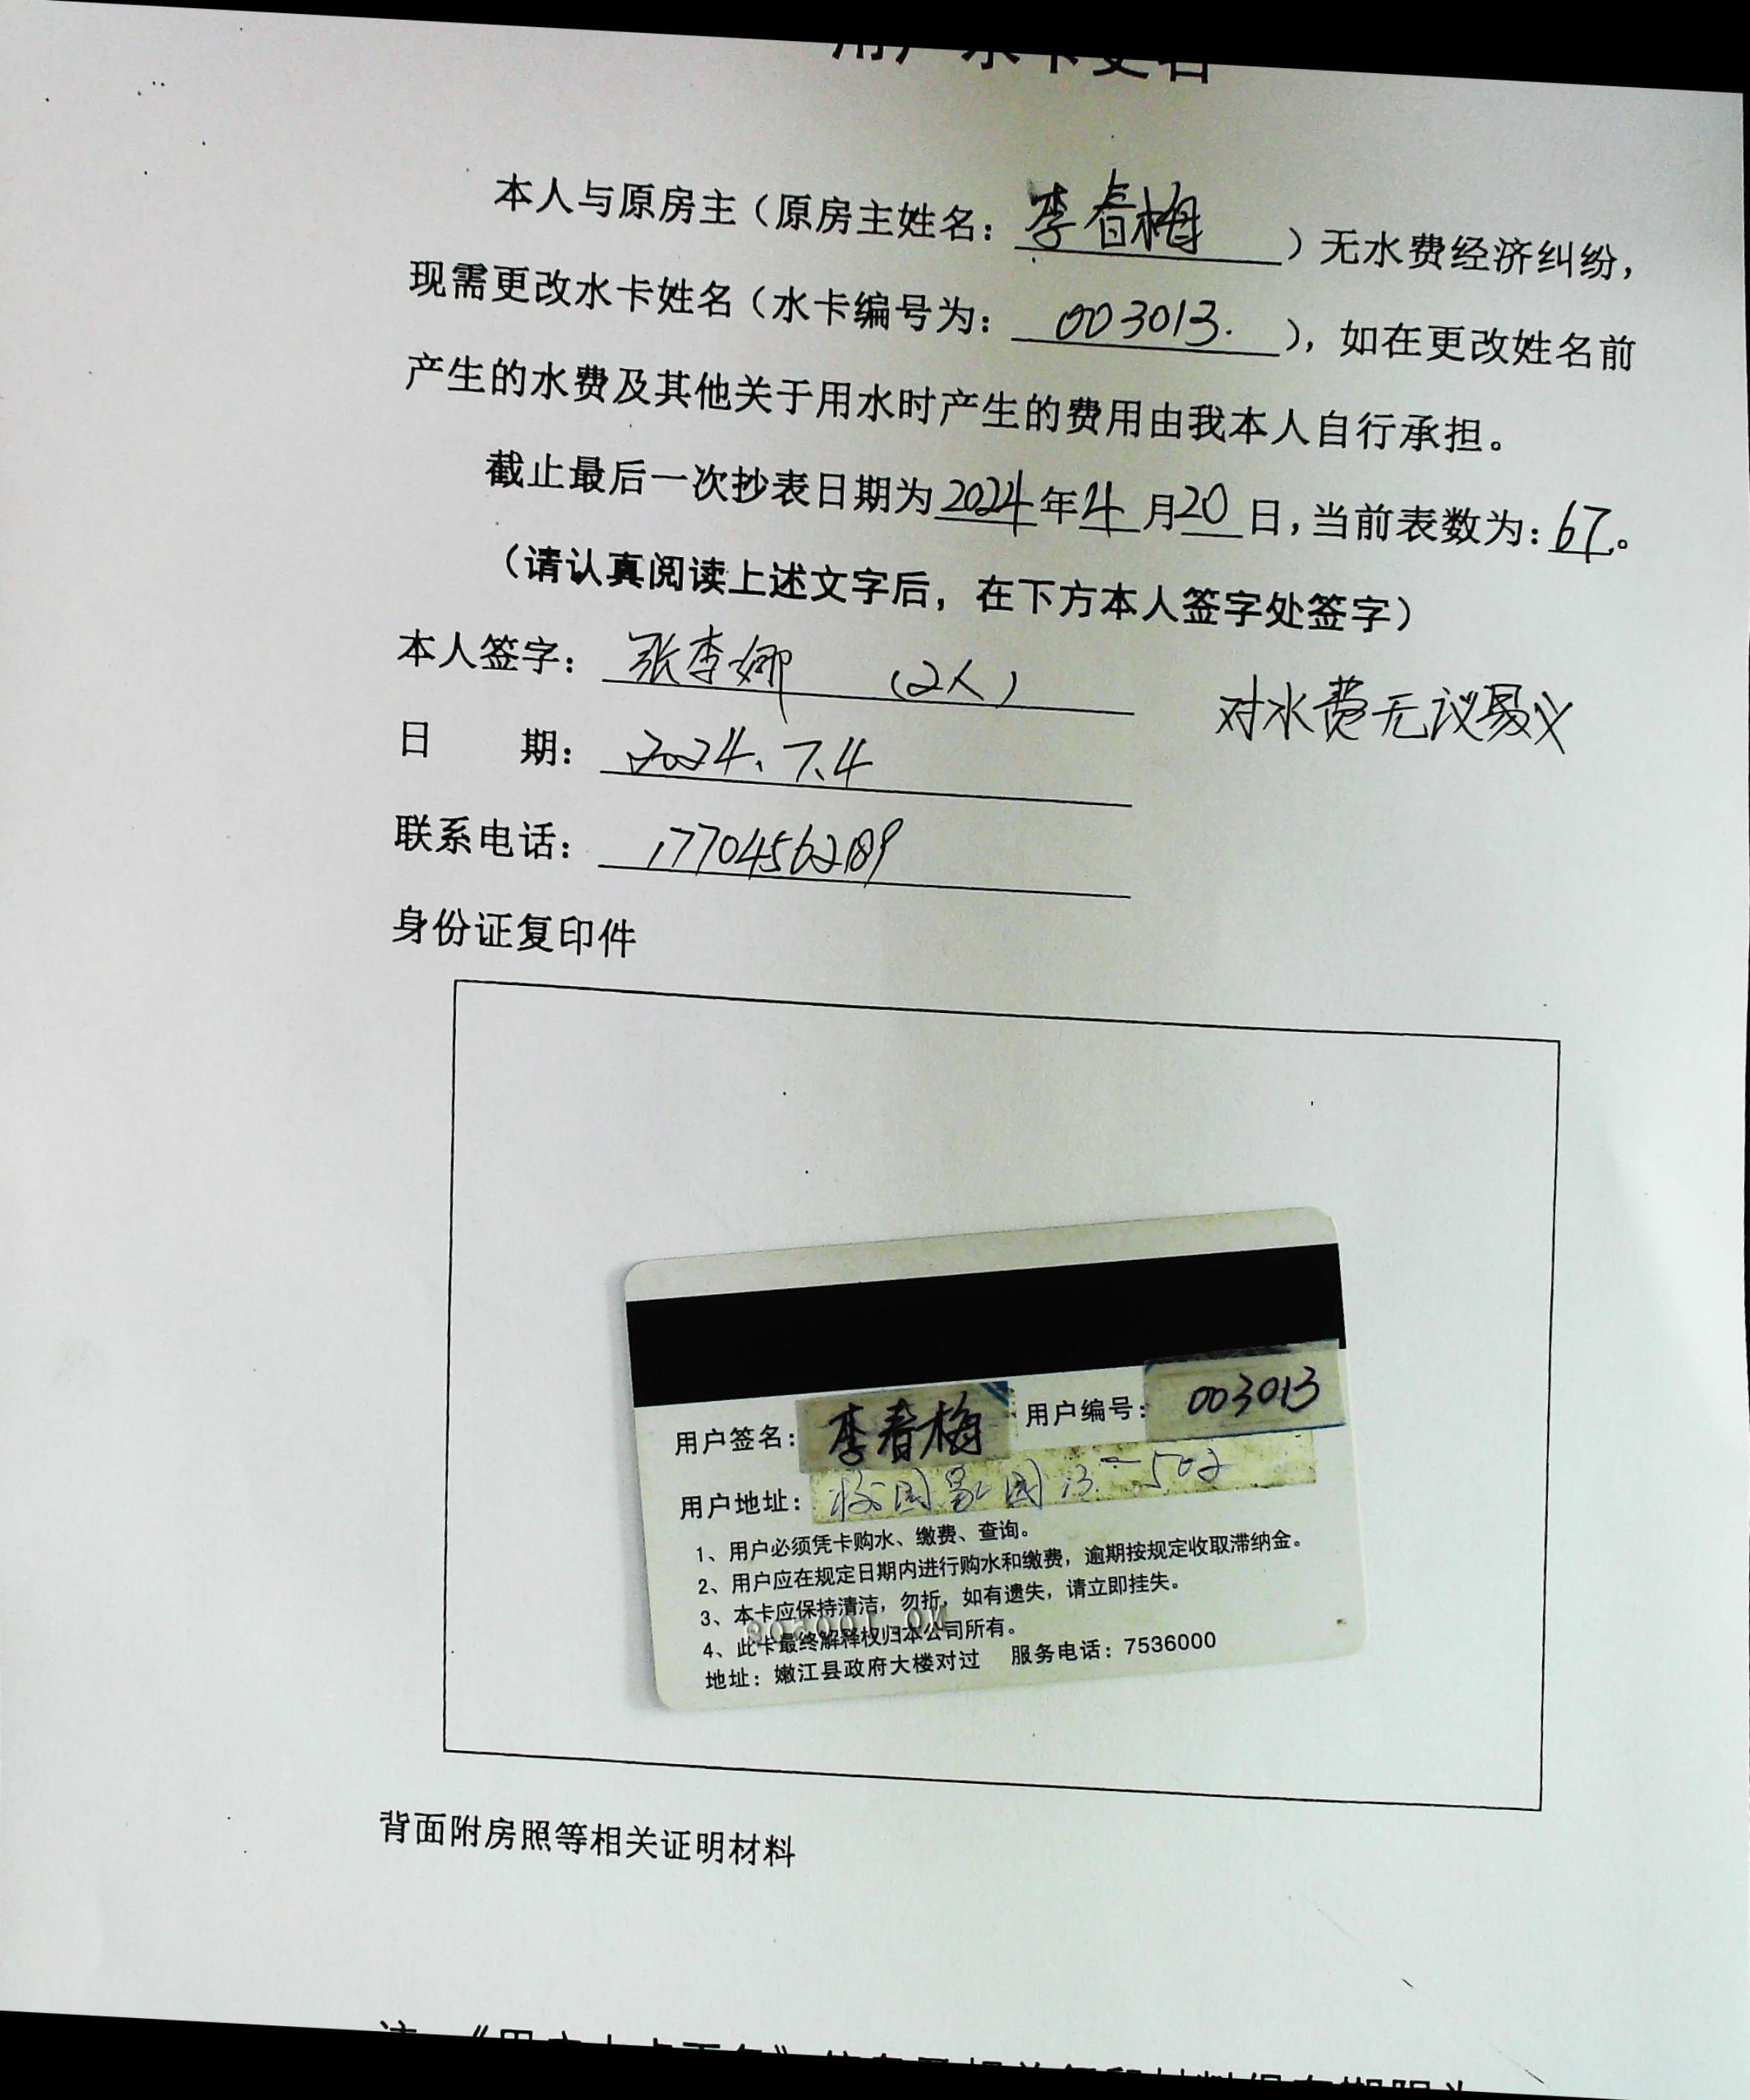 用户水卡更名
本人与原房主（原房主姓名：李春梅）无水费经济纠纷，
现需更改水卡姓名（水卡编号为：003013.），如在更改姓名前
产生的水费及其他关于用水时产生的费用由我本人自行承担。
截止最后一次抄表日期为2024年4月20日，当前表数为：67。
（请认真阅读上述文字后，在下方本人签字处签字）
本人签字：张李娜 （2人）
对水费无议异义
日 期：2024.7.4
联系电话：17704562189
身份证复印件
用户签名：李春梅 用户编号：003013
用户地址：校园家园13-502
1、用户必须凭卡购水、缴费、查询。
2、用户应在规定日期内进行购水和缴费，逾期按规定收取滞纳金。
3、本卡应保持清洁，勿折，如有遗失，请立即挂失。
4、此卡最终解释权归本公司所有。
地址：嫩江县政府大楼对过 服务电话：7536000
背面附房照等相关证明材料